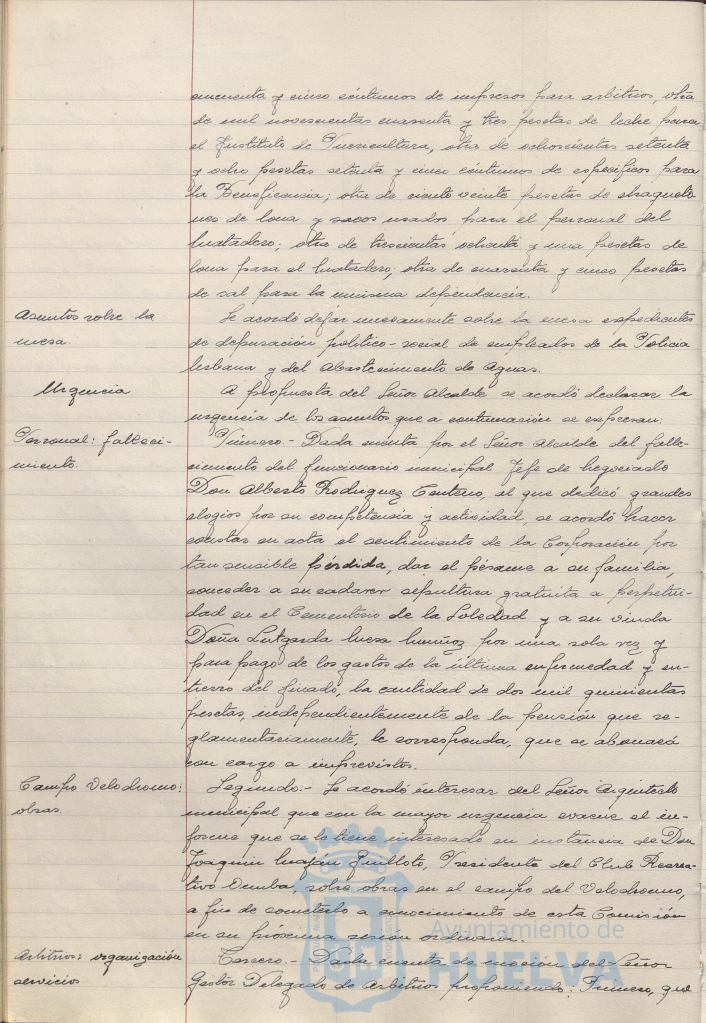 cincuenta y cinco céntimos de impresos para arbitrios, otra
de mil novescientas cuarenta y tres pesetas de leche para
el Instituto de Puericultura, otra de ochoscientas setenta
y ocho pesetas setenta y cinco céntimos de específicos para
la Beneficencia; otra de ciento veinte pesetas de chaqueto
nes de lona y sacos usados para el personal del
Matadero; otra de trescientas ochenta y una pesetas de
lona para el Matadero; otra de cuarenta y cinco pesetas
de sal para la misma dependencia.
Asuntos sobre la
mesa.
Se acordó dejar nuevamente sobre la mesa expedientes
de depuración político-social de empleados de la Policía
Urbana y del Abastecimiento de Aguas.
Urgencia
A propuesta del Señor Alcalde se acordó declarar la
urgencia de los asuntos que a continuación se expresan.
Personal: falleci-
miento.
Primero.- Dada cuenta por el Señor Alcalde del falle-
cimiento del funcionario municipal Jefe de Negociado
Don Alberto Rodriguez Centeno, al que dedicó grandes
elogios por su competencia y actividad, se acordó hacer
constar en acta el sentimiento de la Corporación por
tan sensible pérdida, dar el pésame a su familia,
conceder a su cadaver sepultura gratuita a perpetui-
dad en el Cementerio de la Soledad y a su viuda
Doña Lutgarda Muñoz por una sola vez y
para pago de los gastos de la última enfermedad y en-
tierro del finado, la cantidad de dos mil quinientas
pesetas, independientemente de la pensión que re-
glamentariamente, le corresponda, que se abonará
con cargo a imprevistos.
Campo Velodromo:
obras.
Segundo.- Se acordó interesar del Señor Arquitecto
municipal que con la mayor urgencia evacue el in-
forme que se le tiene interesado en instancia de Don
Joaquin Guilloto, Presidente del Club Recrea-
tivo Onuba, sobre obras en el campo del Velodromo,
a fin de someterlo a conocimiento de esta Comisión
en su próxima sesión ordinaria.
Arbitrios: organización
servicios
Tercero.- Dada cuenta de moción del Señor
Gestor Delegado de Arbitrios proponiendo: Primero, que
Ayuntamiento de
HUELVA